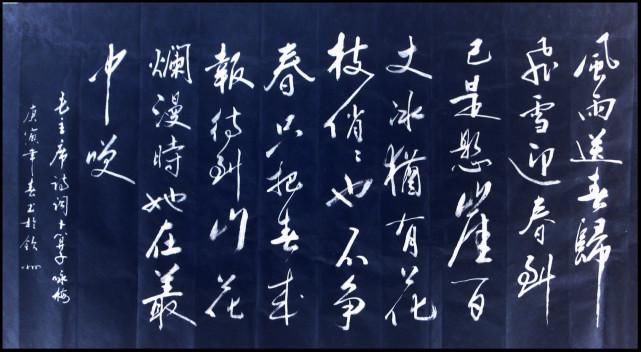 風雨送春歸
飛雪迎春到
已是懸崖百
丈冰猶有花
枝俏〻也不争
春只把春来
報待到山花
爛漫時她在叢
中笑
毛主席诗词卜算子咏梅
庚寅年春书於钦州